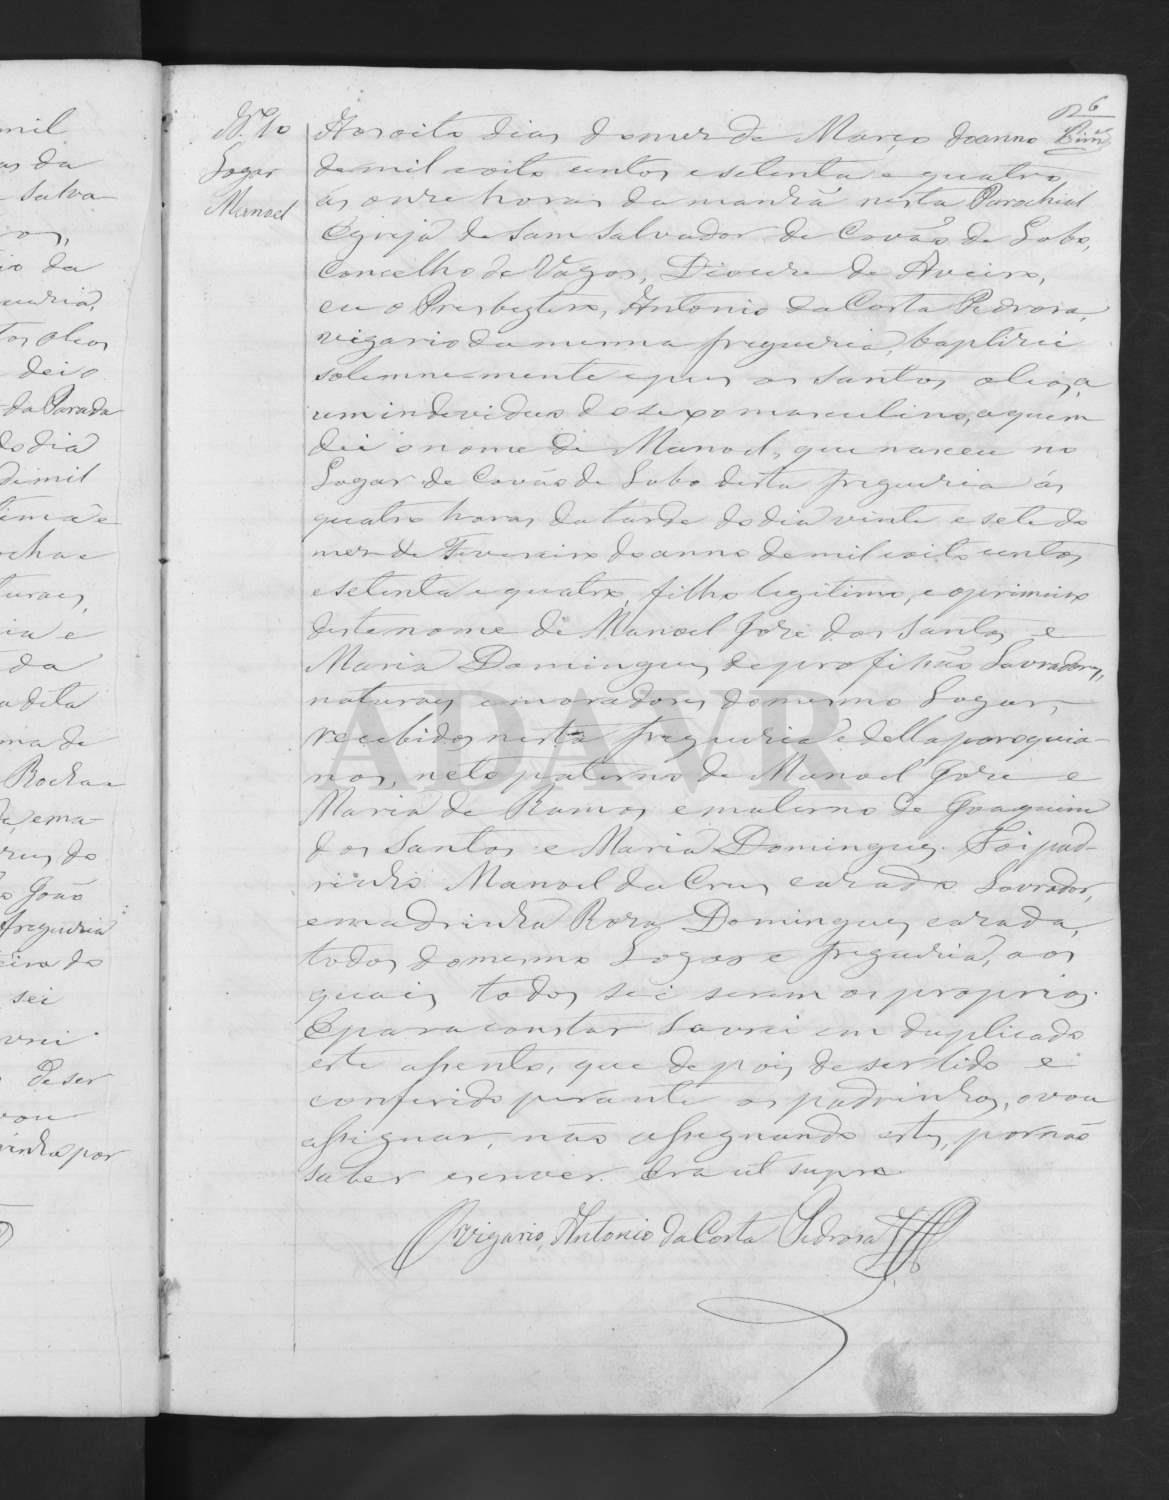 mil
as da
Salva-
os,
io da
guesia,
tos oleos
dei o
da Parada
do dia
de mil
tenta e
ocha e
turaes,
ia e
da
a dita
ma de
Rocha e
e ma-
do
João
freguesia
eiro do
sei
vrei
de ser
vou
inha por
6
N.º 10
Logar
Manoel
Aos oito dias do mez de Março do anno
de mil e oito centos e setenta e quatro
ás onze horas da manhã nesta Parochial
Egreja de Sam Salvador de Covão de Lobo,
Concelho de Vagos, Diocese de Aveiro,
eu o Presbytero, Antonio da Costa Pedrosa,
vigario da mesma freguesia, baptizei
solemnemente e puz os santos oleos, a
um individuo do sexo masculino, a quem
dei o nome de Manoel, que nasceu no
Logar de Covão de Lobo desta freguesia ás
quatro horas da tarde do dia vinte e sete do
mez de Fevereiro do anno de mil e oito centos
e setenta e quatro, filho legitimo, e o primeiro
deste nome de Manoel José dos Santos e
Maria Domingues, de profissão Lavradores,
naturaes e moradores do mesmo Logar,
recebidos nesta freguesia e della paroquia-
nos, neto paterno de Manoel José e
Maria de Ramos e materno de Joaquim
dos Santos e Maria Domingues. Foi pad-
rinho Manoel da Cruz casado Lavrador,
e madrinha Rosa Domingues casada,
todos do mesmo Logar e freguesia, aos
quais todos sei serem os proprios.
E para constar lavrei em duplicado
este assento, que depois de ser lido e
conferido perante os padrinhos, o vou
assignar, não assignando estes, por não
saber escrever. Era ut supra
O vigario, Antonio da Costa Pedrosa
ADAVR